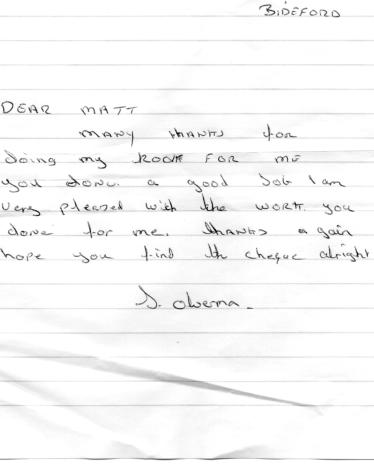 BIDEFORD
DEAR MATT
MANY THANKS for
doing my ROOF FOR ME
you done. a good Job I am
very pleased with the WORK. you
done for me. thanks again
hope you find th cheque alright